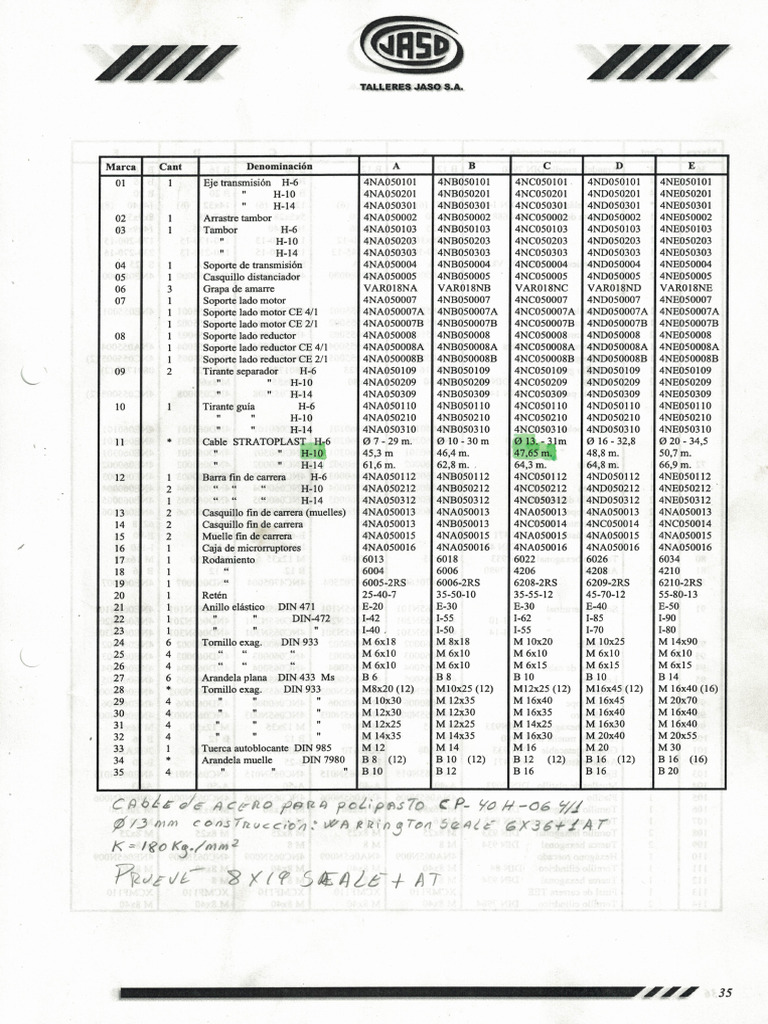 JASO
TALLERES JASO S.A.
Marca Cant Denominación A B C D E
01 1 Eje transmisión H-6 4NA050101 4NB050101 4NC050101 4ND050101 4NE050101
" H-10 4NA050201 4NB050201 4NC050201 4ND050201 4NE050201
" H-14 4NA050301 4NB050301 4NC050301 4ND050301 4NE050301
02 1 Arrastre tambor 4NA050002 4NB050002 4NC050002 4ND050002 4NE050002
03 1 Tambor H-6 4NA050103 4NB050103 4NC050103 4ND050103 4NE050103
" H-10 4NA050203 4NB050203 4NC050203 4ND050203 4NE050203
" H-14 4NA050303 4NB050303 4NC050303 4ND050303 4NE050303
04 1 Soporte de transmisión 4NA050004 4NB050004 4NC050004 4ND050004 4NE050004
05 1 Casquillo distanciador 4NA050005 4NB050005 4NC050005 4ND050005 4NE050005
06 3 Grapa de amarre VAR018NA VAR018NB VAR018NC VAR018ND VAR018NE
07 1 Soporte lado motor 4NA050007 4NB050007 4NC050007 4ND050007 4NE050007
1 Soporte lado motor CE 4/1 4NA050007A 4NB050007A 4NC050007A 4ND050007A 4NE050007A
1 Soporte lado motor CE 2/1 4NA050007B 4NB050007B 4NC050007B 4ND050007B 4NE050007B
08 1 Soporte lado reductor 4NA050008 4NB050008 4NC050008 4ND050008 4NE050008
1 Soporte lado reductor CE 4/1 4NA050008A 4NB050008A 4NC050008A 4ND050008A 4NE050008A
1 Soporte lado reductor CE 2/1 4NA050008B 4NB050008B 4NC050008B 4ND050008B 4NE050008B
09 2 Tirante separador H-6 4NA050109 4NB050109 4NC050109 4ND050109 4NE050109
" " H-10 4NA050209 4NB050209 4NC050209 4ND050209 4NE050209
" " H-14 4NA050309 4NB050309 4NC050309 4ND050309 4NE050309
10 1 Tirante guía H-6 4NA050110 4NB050110 4NC050110 4ND050110 4NE050110
" " H-10 4NA050210 4NB050210 4NC050210 4ND050210 4NE050210
" " H-14 4NA050310 4NB050310 4NC050310 4ND050310 4NE050310
11 * Cable STRATOPLAST H-6 Ø 7 - 29 m. Ø 10 - 30 m Ø 13, - 31m Ø 16 - 32,8 Ø 20 - 34,5
" " H-10 45,3 m 46,4 m. 47,65 m. 48,8 m. 50,7 m.
" " H-14 61,6 m. 62,8 m. 64,3 m. 64,8 m. 66,9 m.
12 1 Barra fin de carrera H-6 4NA050112 4NB050112 4NC050112 4ND050112 4NE050112
2 " " " H-10 4NA050212 4NB050212 4NC050212 4ND050212 4NE050212
1 " " " H-14 4NA050312 4NB050312 4NC050312 4ND050312 4NE050312
13 2 Casquillo fin de carrera (muelles) 4NA050013 4NB050013 4NA050013 4NA050013 4NA050013
14 2 Casquillo fin de carrera 4NA050013 4NB050013 4NC050014 4NC050014 4NC050014
15 2 Muelle fin de carrera 4NA050015 4NB050015 4NA050015 4NA050015 4NA050015
16 1 Caja de microrruptores 4NA050016 4NA050016 4NA050016 4NA050016 4NA050016
17 1 Rodamiento 6013 6018 6022 6026 6034
18 1 " 6004 6006 4206 4208 4210
19 1 " 6005-2RS 6006-2RS 6208-2RS 6209-2RS 6210-2RS
20 1 Retén 25-40-7 35-50-10 35-55-12 45-70-12 55-80-13
21 1 Anillo elástico DIN 471 E-20 E-30 E-30 E-40 E-50
22 1 " " DIN-472 I-42 I-55 I-62 I-85 I-90
23 1 " " I-40 I-50 I-55 I-70 I-80
24 6 Tornillo exag. DIN 933 M 6x18 M 8x18 M 10x20 M 10x25 M 14x90
25 4 " " " M 6x10 M 6x10 M 6x10 M 6x10 M 6x10
26 4 " " " M 6x10 M 6x10 M 6x15 M 6x15 M 6x10
27 6 Arandela plana DIN 433 Ms B 6 B 8 B 10 B 10 B 14
28 * Tornillo exag. DIN 933 M8x20 (12) M10x25 (12) M12x25 (12) M16x45 (12) M 16x40 (16)
29 4 " " " M 10x30 M 12x35 M 16x40 M 16x45 M 20x70
30 4 " " " M 12x30 M 12x30 M 12x35 M 16x40 M 16x40
31 4 " " " M 12x25 M 12x25 M 14x25 M 16x30 M 16x40
32 4 " " " M 14x35 M 14x35 M 16x30 M 20x40 M 20x55
33 1 Tuerca autoblocante DIN 985 M 12 M 14 M 16 M 20 M 30
34 * Arandela muelle DIN 7980 B 8 (12) B 10 (12) B 12 (12) B 16 (12) B 16 (16)
35 4 " " " B 10 B 12 B 16 B 16 B 20
CABLE de ACERO PARA POLIPASTO CP-40H-06 4/1
Ø 13 mm CONSTRUCCIÓN: WARRINGTON SEALE 6X36+1 AT
K=180Kg./mm²
PRUEVE 8X19 SEALE + AT
35